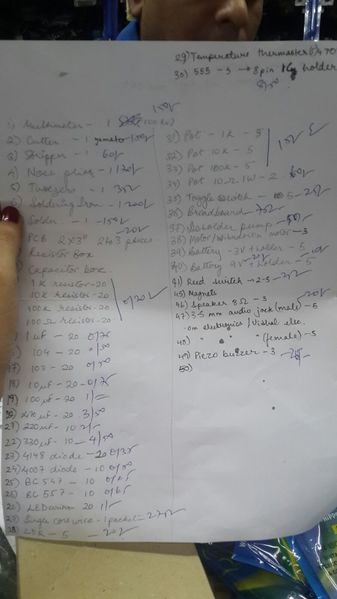 29) Temperature thermaster 470
30) 555 - 5 → 8 pin holder
1) Multimeter - 1
2) Cutter - 1
3) Stripper - 1 60/-
4) Nose plier - 1 120/-
5) Tweezers - 1 35/-
6) Soldering Iron - 1 200/-
Solder - 1 - 150/-
PCB 2x3" 2 pieces
Resistor Box
Capacitor box
1K resistor - 20
10K resistor - 20
100K resistor - 20
100Ω resistor - 20
0/20/-
1 µf - 20 0/75
16) 104 - 20 0/50
17) 103 - 20 0/50
18) 10µf - 20 - 0/75
19) 100µf - 20 1/-
20) 470µf - 20 3/50
21) 220µf - 10 2/-
22) 330µf - 10 - 4/50
23) 4148 diode - 20 0/35
24) 4007 diode - 10 0/50
25) BC 547 - 10 0/65
26) BC 557 - 10 0/65
20 1/-
Single core wire - 1 packet - 270/-
LDR - 5 - 20/-
31) Pot - 1K - 5
32) Pot 10K - 5
33) Pot 100K - 5
34) Pot 10Ω 1W - 2
35) Toggle switch 5 - 25/-
36) Breadboard - 75/-
37) Desolder pump
38) Motor/vibration motor - 3
39) Battery - 3V + holder - 5
40) Battery 9V + holder - 5
41) Reed switch - 2-5
45) Magnets
46) Speaker 8Ω - 3
47) 3.5 mm audio jack (male) - 5
om electronics / Vishal elec.
48) " " " (female) - 5
49) Piezo buzzer - 3
50)